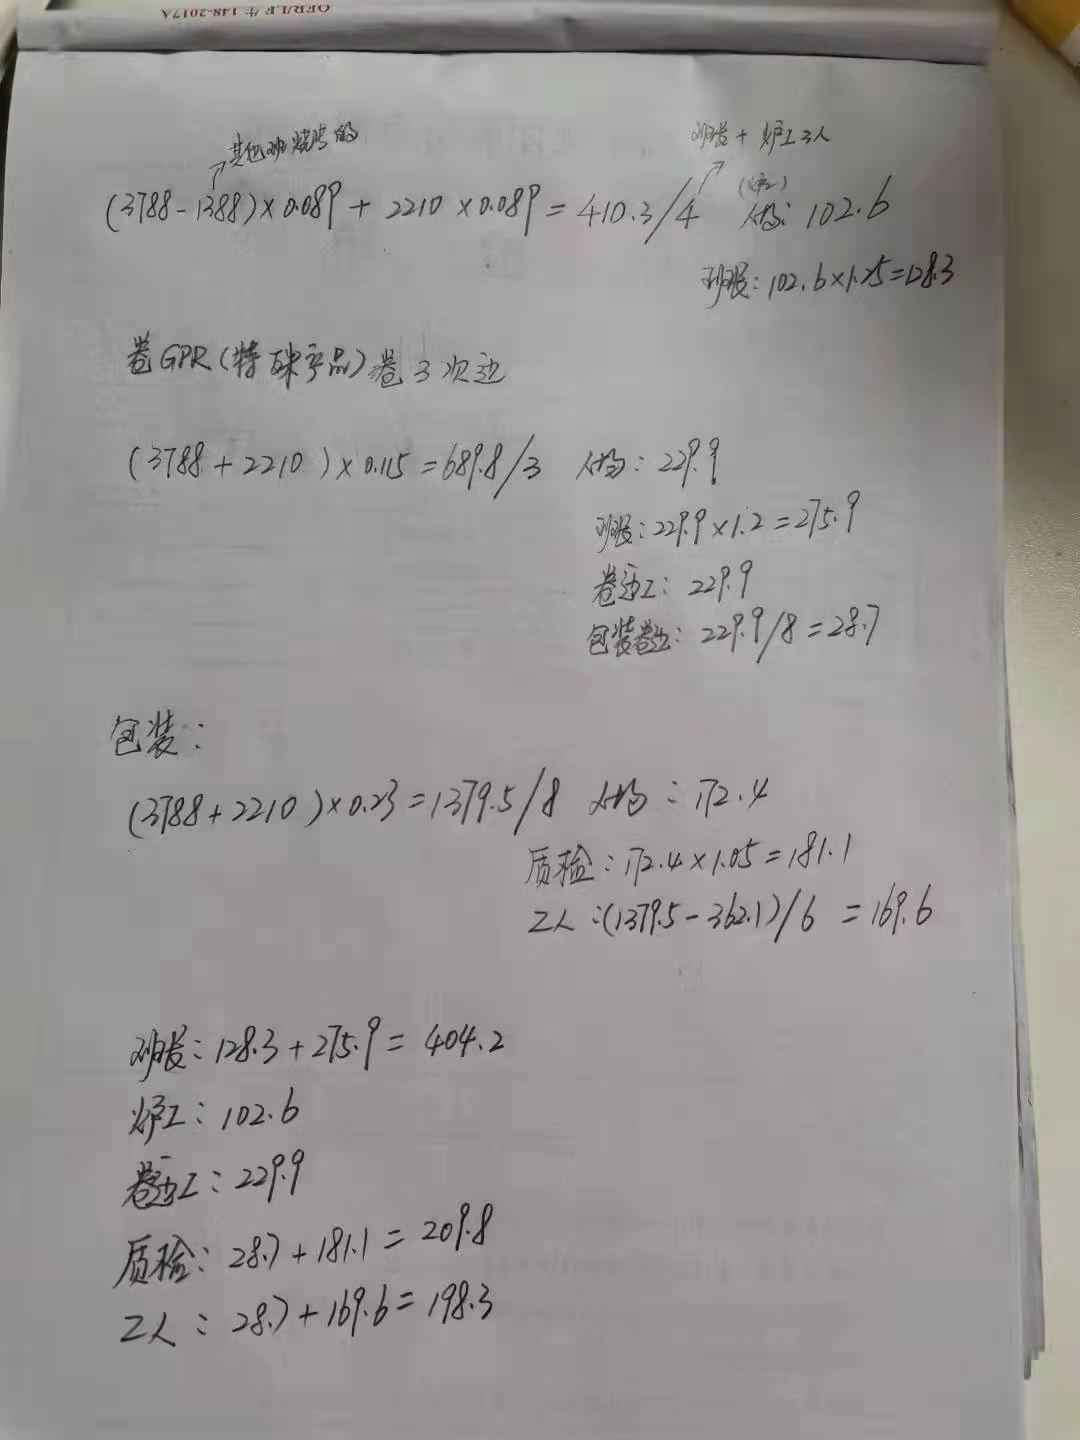 QFR/LF生148-2017A
其他班烧片的
班长+炉工3人
(3788-1388)×0.089+2210×0.089=410.3/4 (炉工)人均:102.6
班长:102.6×1.25=128.3
卷GPR(特殊产品)卷3次边
(3788+2210)×0.115=689.8/3 人均:229.9
班长:229.9×1.2=275.9
卷边工:229.9
包装卷边:229.9/8=28.7
包装:
(3788+2210)×0.23=1379.5/8 人均:172.4
质检:172.4×1.05=181.1
工人:(1379.5-362.1)/6=169.6
班长:128.3+275.9=404.2
炉工:102.6
卷边工:229.9
质检:28.7+181.1=209.8
工人:28.7+169.6=198.3